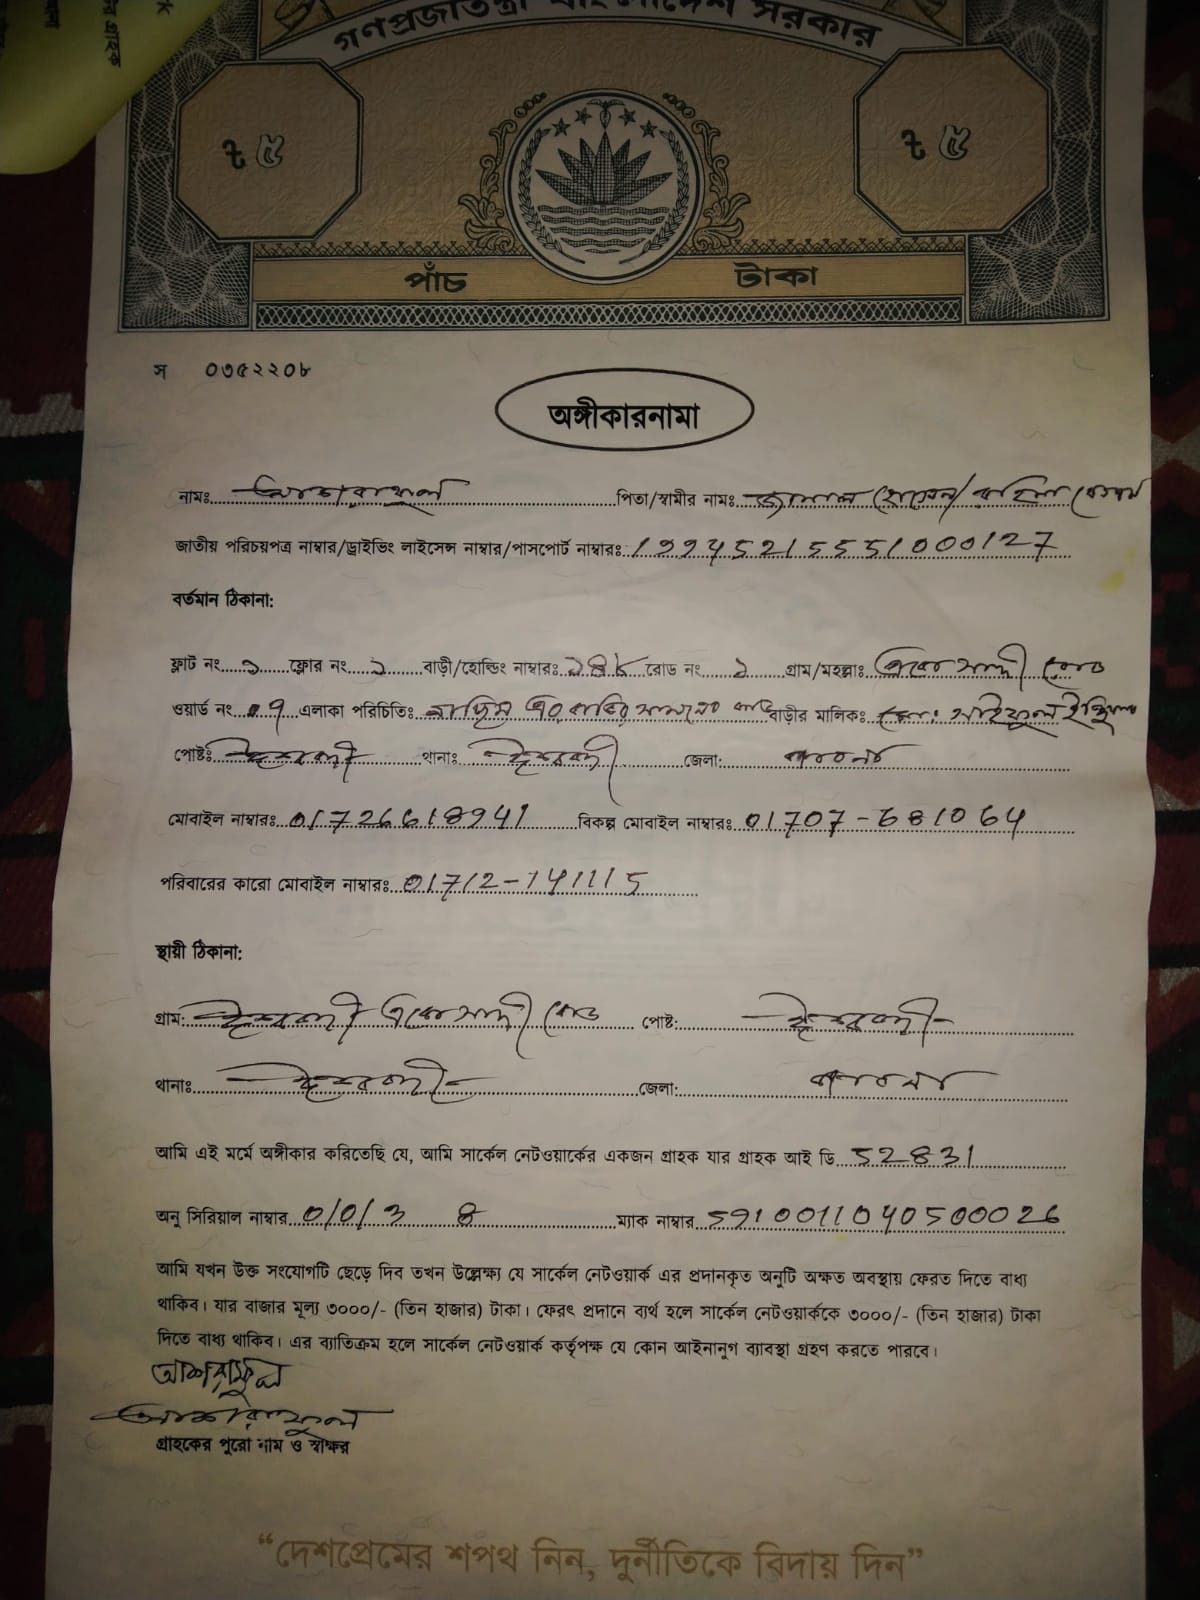 গণপ্রজাতন্ত্রী বাংলাদেশ সরকার
৳ ৫ ৳ ৫
পাঁচ টাকা
স ০৩৫২২০৮
অঙ্গীকারনামা
নামঃ আশরাফুল পিতা/স্বামীর নামঃ জালাল হোসেন/ রহিমা বেগম
জাতীয় পরিচয়পত্র নাম্বার/ড্রাইভিং লাইসেন্স নাম্বার/পাসপোর্ট নাম্বারঃ 19945215551000127
বর্তমান ঠিকানা:
ফ্লাট নং ১ ফ্লোর নং ১ বাড়ী/হোল্ডিং নাম্বারঃ রোড নং ১ গ্রাম/মহল্লাঃ রোড
ওয়ার্ড নং ০৭ এলাকা পরিচিতিঃ বাড়ীর মালিক: মো: সাইফুল ইসলাম
পোষ্টঃ ঈশ্বরদী থানাঃ ঈশ্বরদী জেলা: পাবনা
মোবাইল নাম্বারঃ 01726618941 বিকল্প মোবাইল নাম্বারঃ 01707-681064
পরিবারের কারো মোবাইল নাম্বারঃ 01712-141115
স্থায়ী ঠিকানা:
গ্রাম: ঈশ্বরদী রোড পোষ্ট: ঈশ্বরদী
থানাঃ ঈশ্বরদী জেলা: পাবনা
আমি এই মর্মে অঙ্গীকার করিতেছি যে, আমি সার্কেল নেটওয়ার্কের একজন গ্রাহক যার গ্রাহক আই ডি 52831
অনু সিরিয়াল নাম্বার 0/0/3 8 ম্যাক নাম্বার 5910011040500026
আমি যখন উক্ত সংযোগটি ছেড়ে দিব তখন উল্লেক্ষ্য যে সার্কেল নেটওয়ার্ক এর প্রদানকৃত অনুটি অক্ষত অবস্থায় ফেরত দিতে বাধ্য
থাকিব। যার বাজার মূল্য ৩০০০/- (তিন হাজার) টাকা। ফেরৎ প্রদানে ব্যর্থ হলে সার্কেল নেটওয়ার্ককে ৩০০০/- (তিন হাজার) টাকা
দিতে বাধ্য থাকিব। এর ব্যাতিক্রম হলে সার্কেল নেটওয়ার্ক কর্তৃপক্ষ যে কোন আইনানুগ ব্যাবস্থা গ্রহণ করতে পারবে।
আশরাফুল
আশরাফুল
গ্রাহকের পুরো নাম ও স্বাক্ষর
“দেশপ্রেমের শপথ নিন, দুর্নীতিকে বিদায় দিন”